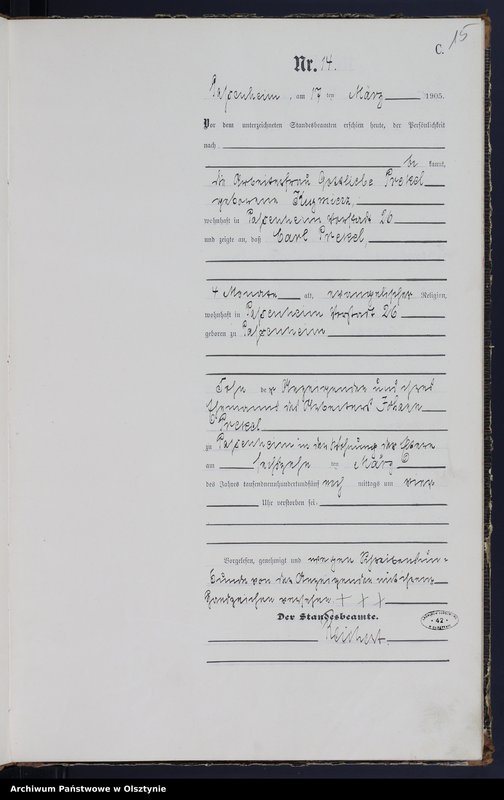 15
C.
Nr. 14.
Passenheim, am 17 ten März 1905.
Vor dem unterzeichneten Standesbeamten erschien heute, der Persönlichkeit
nach
be kannt,
die Arbeiterfrau Gottliebe Prekel
geborene
wohnhaft in Passenheim Vorstadt 26
und zeigte an, daß Carl Prekel,
4 Monate alt, evangelischer Religion,
wohnhaft in Passenheim Vorstadt 26
geboren zu Passenheim
Sohn der Anzeigenden und ihres
Ehemanns des Arbeiters Johann
Prekel
zu Passenheim in der Wohnung der Eltern
am sechszehn ten März
des Jahres tausendneunhundertundfünf nach mittags um vier
Uhr verstorben sei.
Vorgelesen, genehmigt und wegen Schreibensun-
kunde von der Anzeigenden mit ihrem
Handzeichen versehen + + +
Der Standesbeamte.
Reichert
42
Archiwum Państwowe w Olsztynie